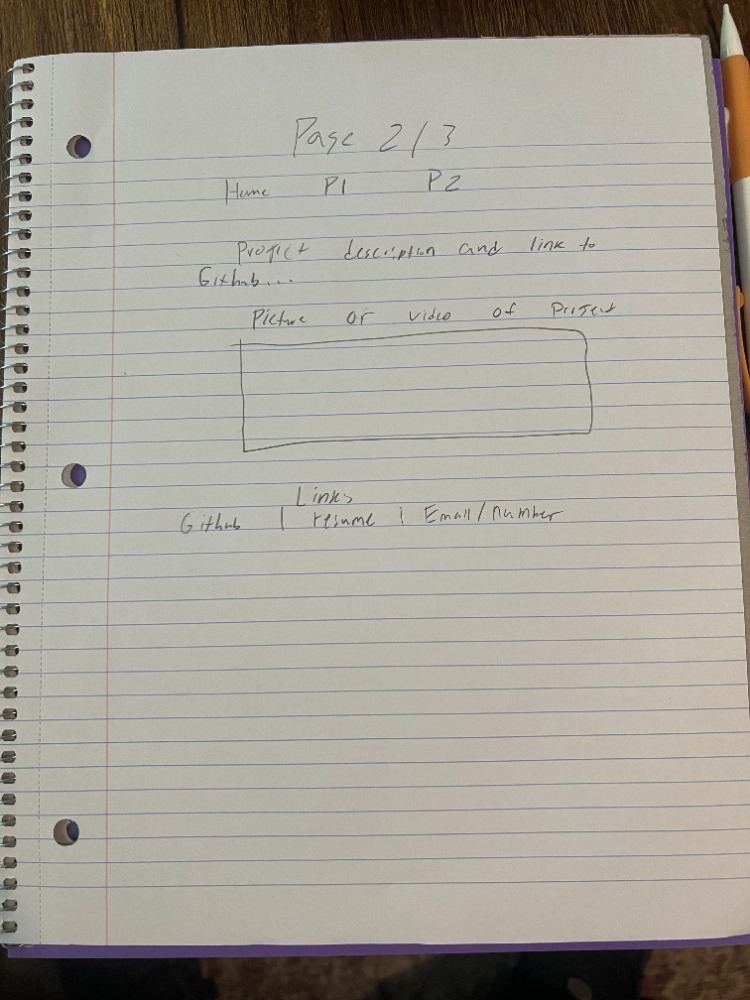 Page 2/3
Home P1 P2
Project description and link to
Github...
Picture or video of Project
Links
Github | resume | Email/number